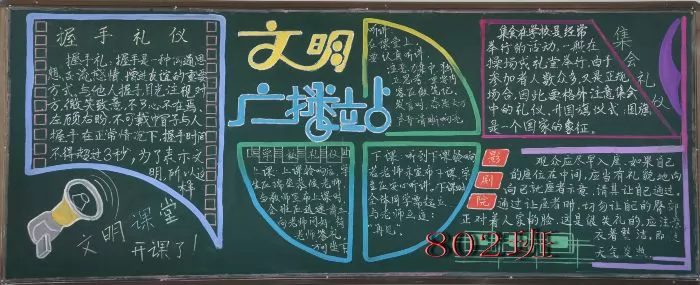 握手礼仪
握手礼,握手是一种沟通思
想、交流感情、增进友谊的重要
方式。与他人握手,目光注视对
方,微笑致意,不可心不在焉、
左顾右盼,不可戴帽子与人
握手。在正常情况下,握手时间
不得超过3秒,为了表示文
明,所以这
样
文明课堂
开课了!
文明
广播站
听讲
在课堂上,
要认真听讲
集会在学校是经常
举行的活动。一般在
操场或礼堂举行,由于
参加者人数众多,又是正规
场合,因此要格外注意集会
中的礼仪。升国旗仪式:国旗
是一个国家的象征。
集会礼仪
学校礼仪
上课:上课铃响后,学
下课:听到下课铃响
若老师未宣布下课,学
生应安心听讲。下课时
全体同学需起立,
与老师互道:
“再见”。
影剧院
观众应尽早入座,如果自己
的座位在中间,应当有礼貌地向
向已就座者示意,请其让自己通过。
通过让座者时,切勿让自己的臀部
正对着人家的脸,这是很失礼的。应注意
衣着整洁,
802班